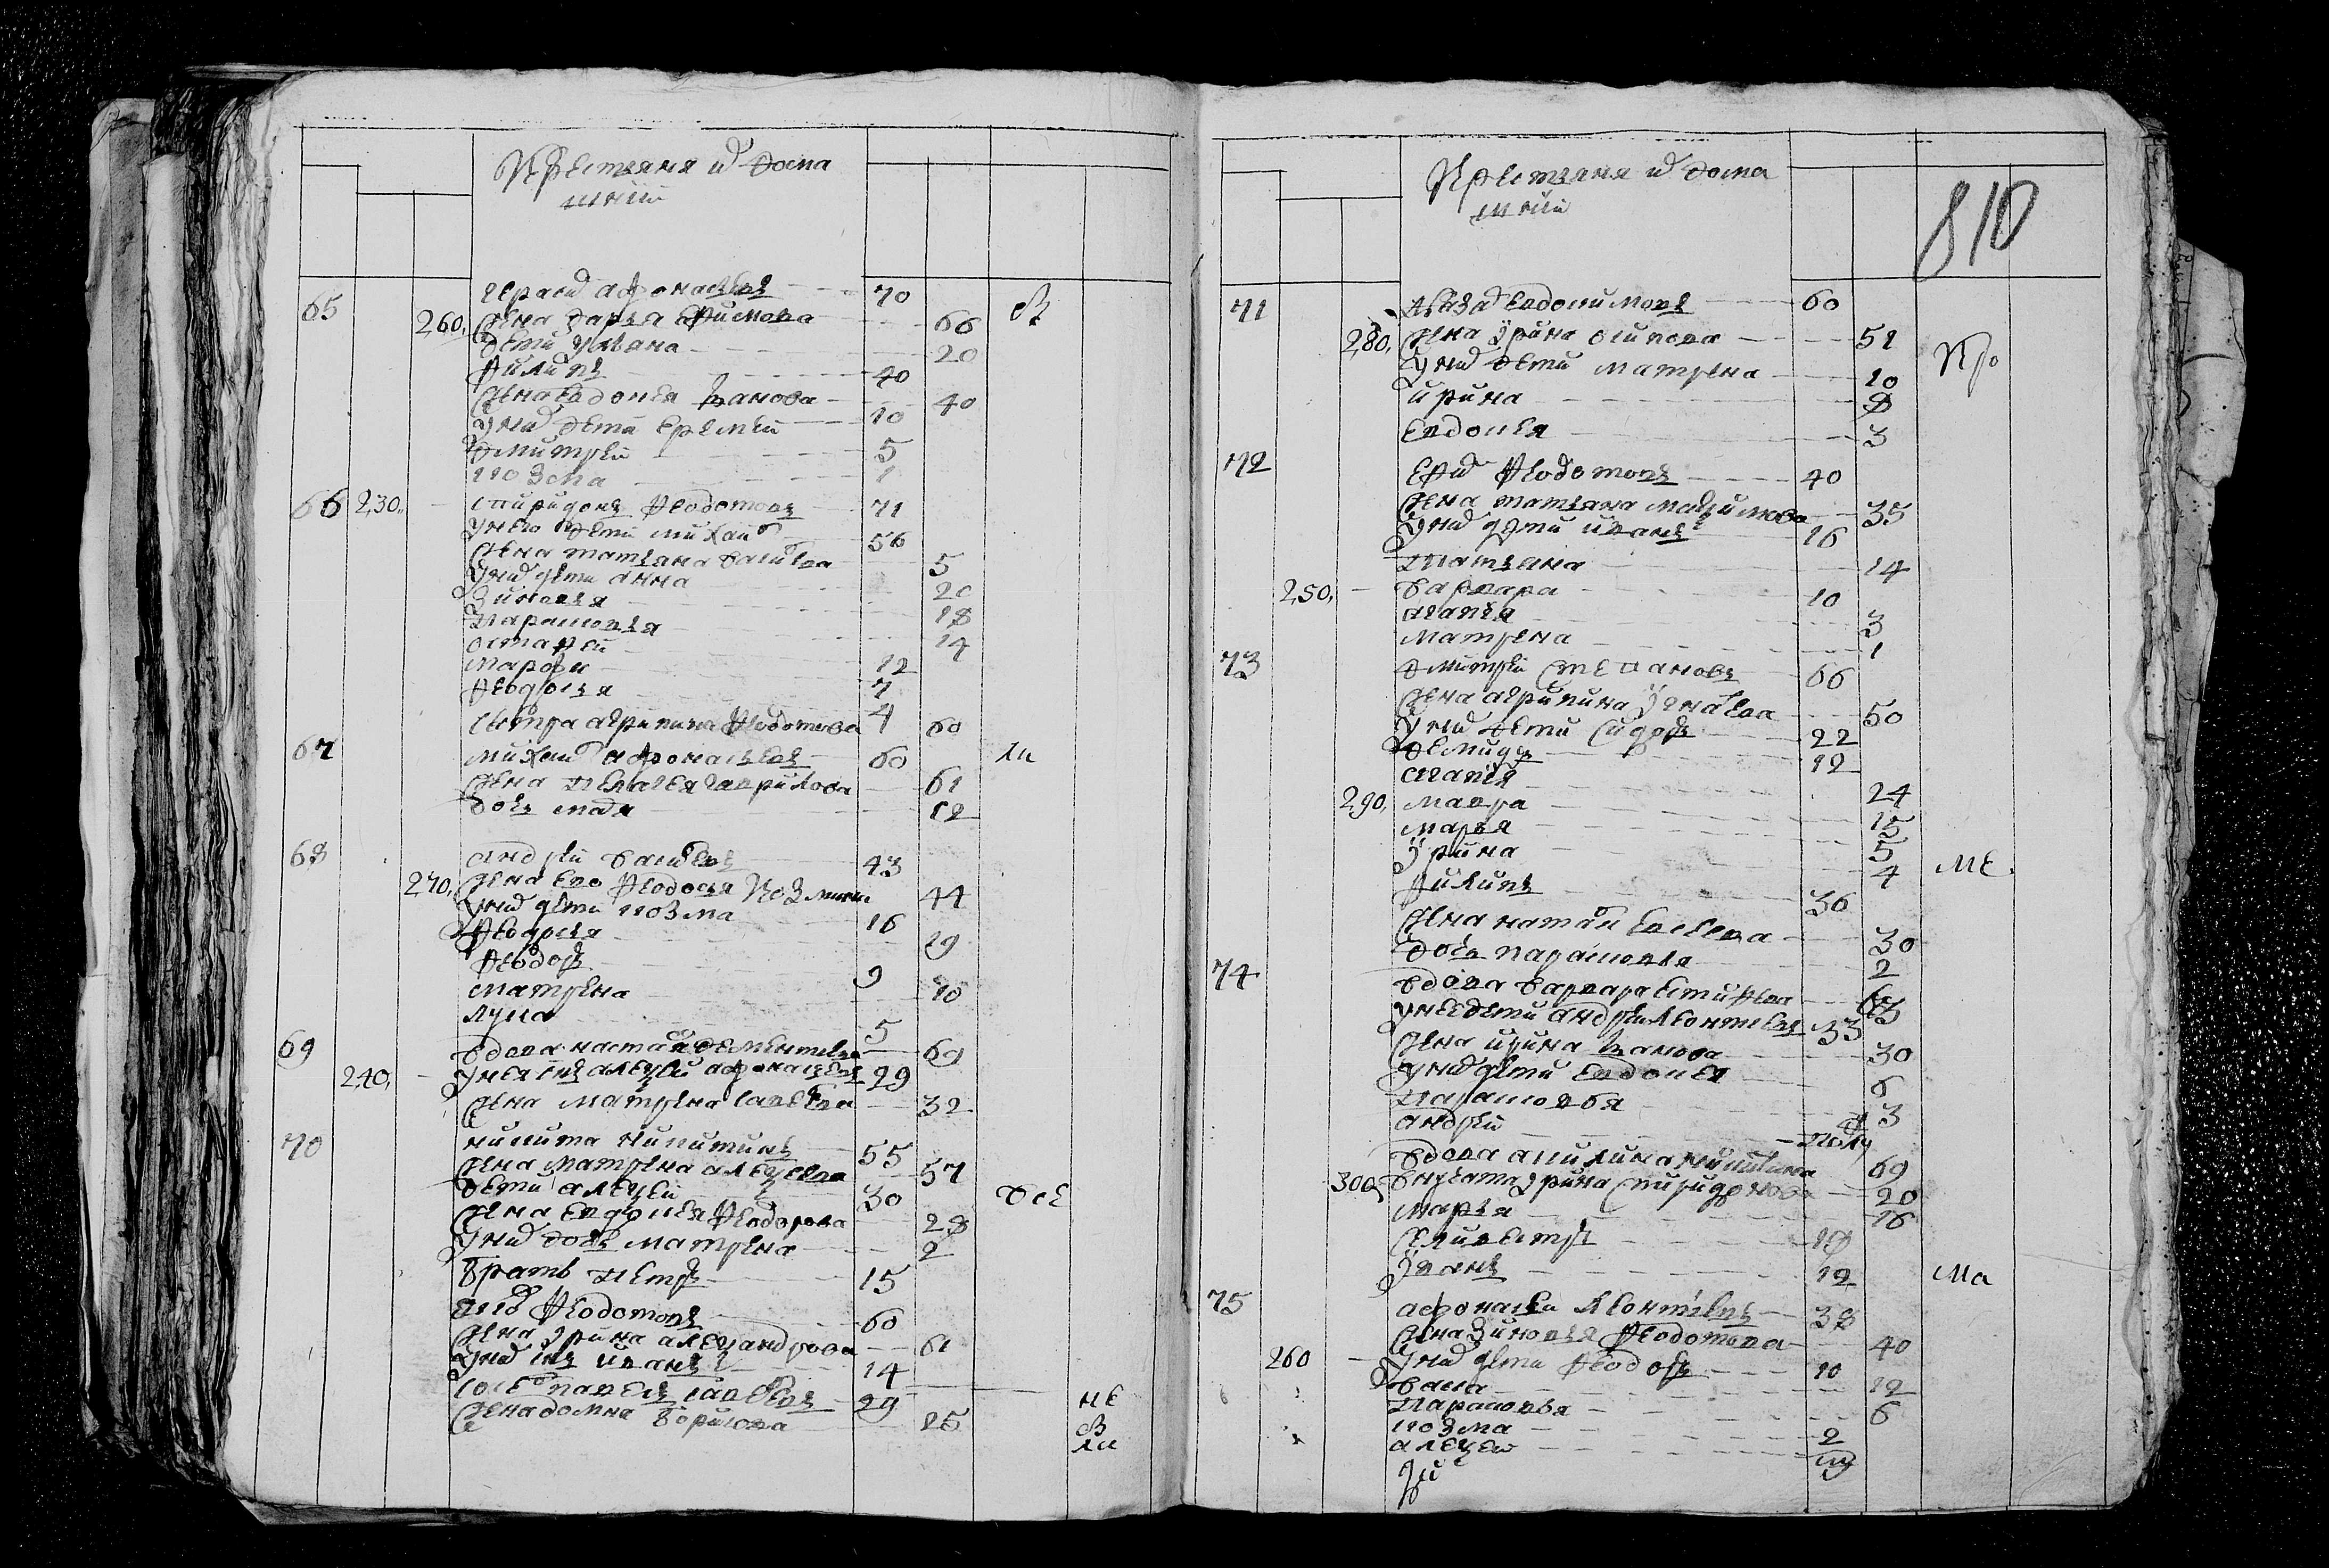 Крестьяня и дома
шнии
65 Герасим Афонасьевъ 70 св
260. жена Дарья Ефимова 66
дети Ульяна 20
Филипъ 40
жена Евдокея Иванова 40
у них дети Еремей 10
Дмитрей 5
Козма 1
66 230. Спиридонъ Феодотовъ 71
у него дети Михаил 56
жена Татьяна Василева 5
у них дети Анна 20
Зиновья 18
Парасковья 14
Остафей 12
Марофи 7
Феодосья 4
сестра Агрипина Феодотова 60
67 Михаил Афонасьевъ 60 ли
жена Пелагея Гаврилова 61
дочь Мавя 12
68 Андрей Василевъ 43
270. жена ево Феодосья Козмина 44
у них дети Козма 16
Феодосья 19
Феодоръ 9
Матрена 10
Лука 5
69 вдова Настасья Дементиева 69
240. у нея сынъ Алексей Афонасьевъ 29
жена Матрена Савелева 32
70 Никита Никитинъ 55
жена Матрена Алексеева 57
дети Алексей 30 все
жена Евдокея Феодорова 28
у них дочь Матрена 2
братъ Петръ 15
Феодотовъ 60
жена Ирина Александрова 61
у них сынъ Иванъ 14
Савелевъ 29 не
жена Домна Борисова 25 св
ли
Крестьяня и дома
шнии
810
71 Евдокимовъ 60
280. жена Ирина Осипова 51
у них дети Матрена 10 Про
Ирина 8
Евдокея 3
72 Ефим Феодотовъ 40
жена Татьяна Максимова 35
у них дети Иванъ 16
Татьяна 14
250. Варвара 10
Агапья 3
Матрена 1
73 Дмитрей Степановъ 66
жена Агрипина Игнатева 50
у них дети Сидоръ 22
Демидъ 12
Агапья 24
290. Мавра 15
Марья 5
Ирина 4 ме
Филипъ 36
жена Наталя Евсеева 30
дочь Парасковья 2
74 вдова Варвара Естифева 63
у нее дети Андрей Леонтьевъ 33
жена Ирина Иванова 30
у них дети Евдокея 6
Парасковья 3
Андрей
вдова Акилина Никитина 69
300. внучата Ирина Спиридонова 20
Марья 16
Селивестръ 18
Иванъ 12 Ма
75 Афонасей Леонтьевъ 38
жена Зиновья Феодотова 40
260 у них дети Феодоръ 10
Васса 12
Парасковья 6
Козма 2
Алексеи